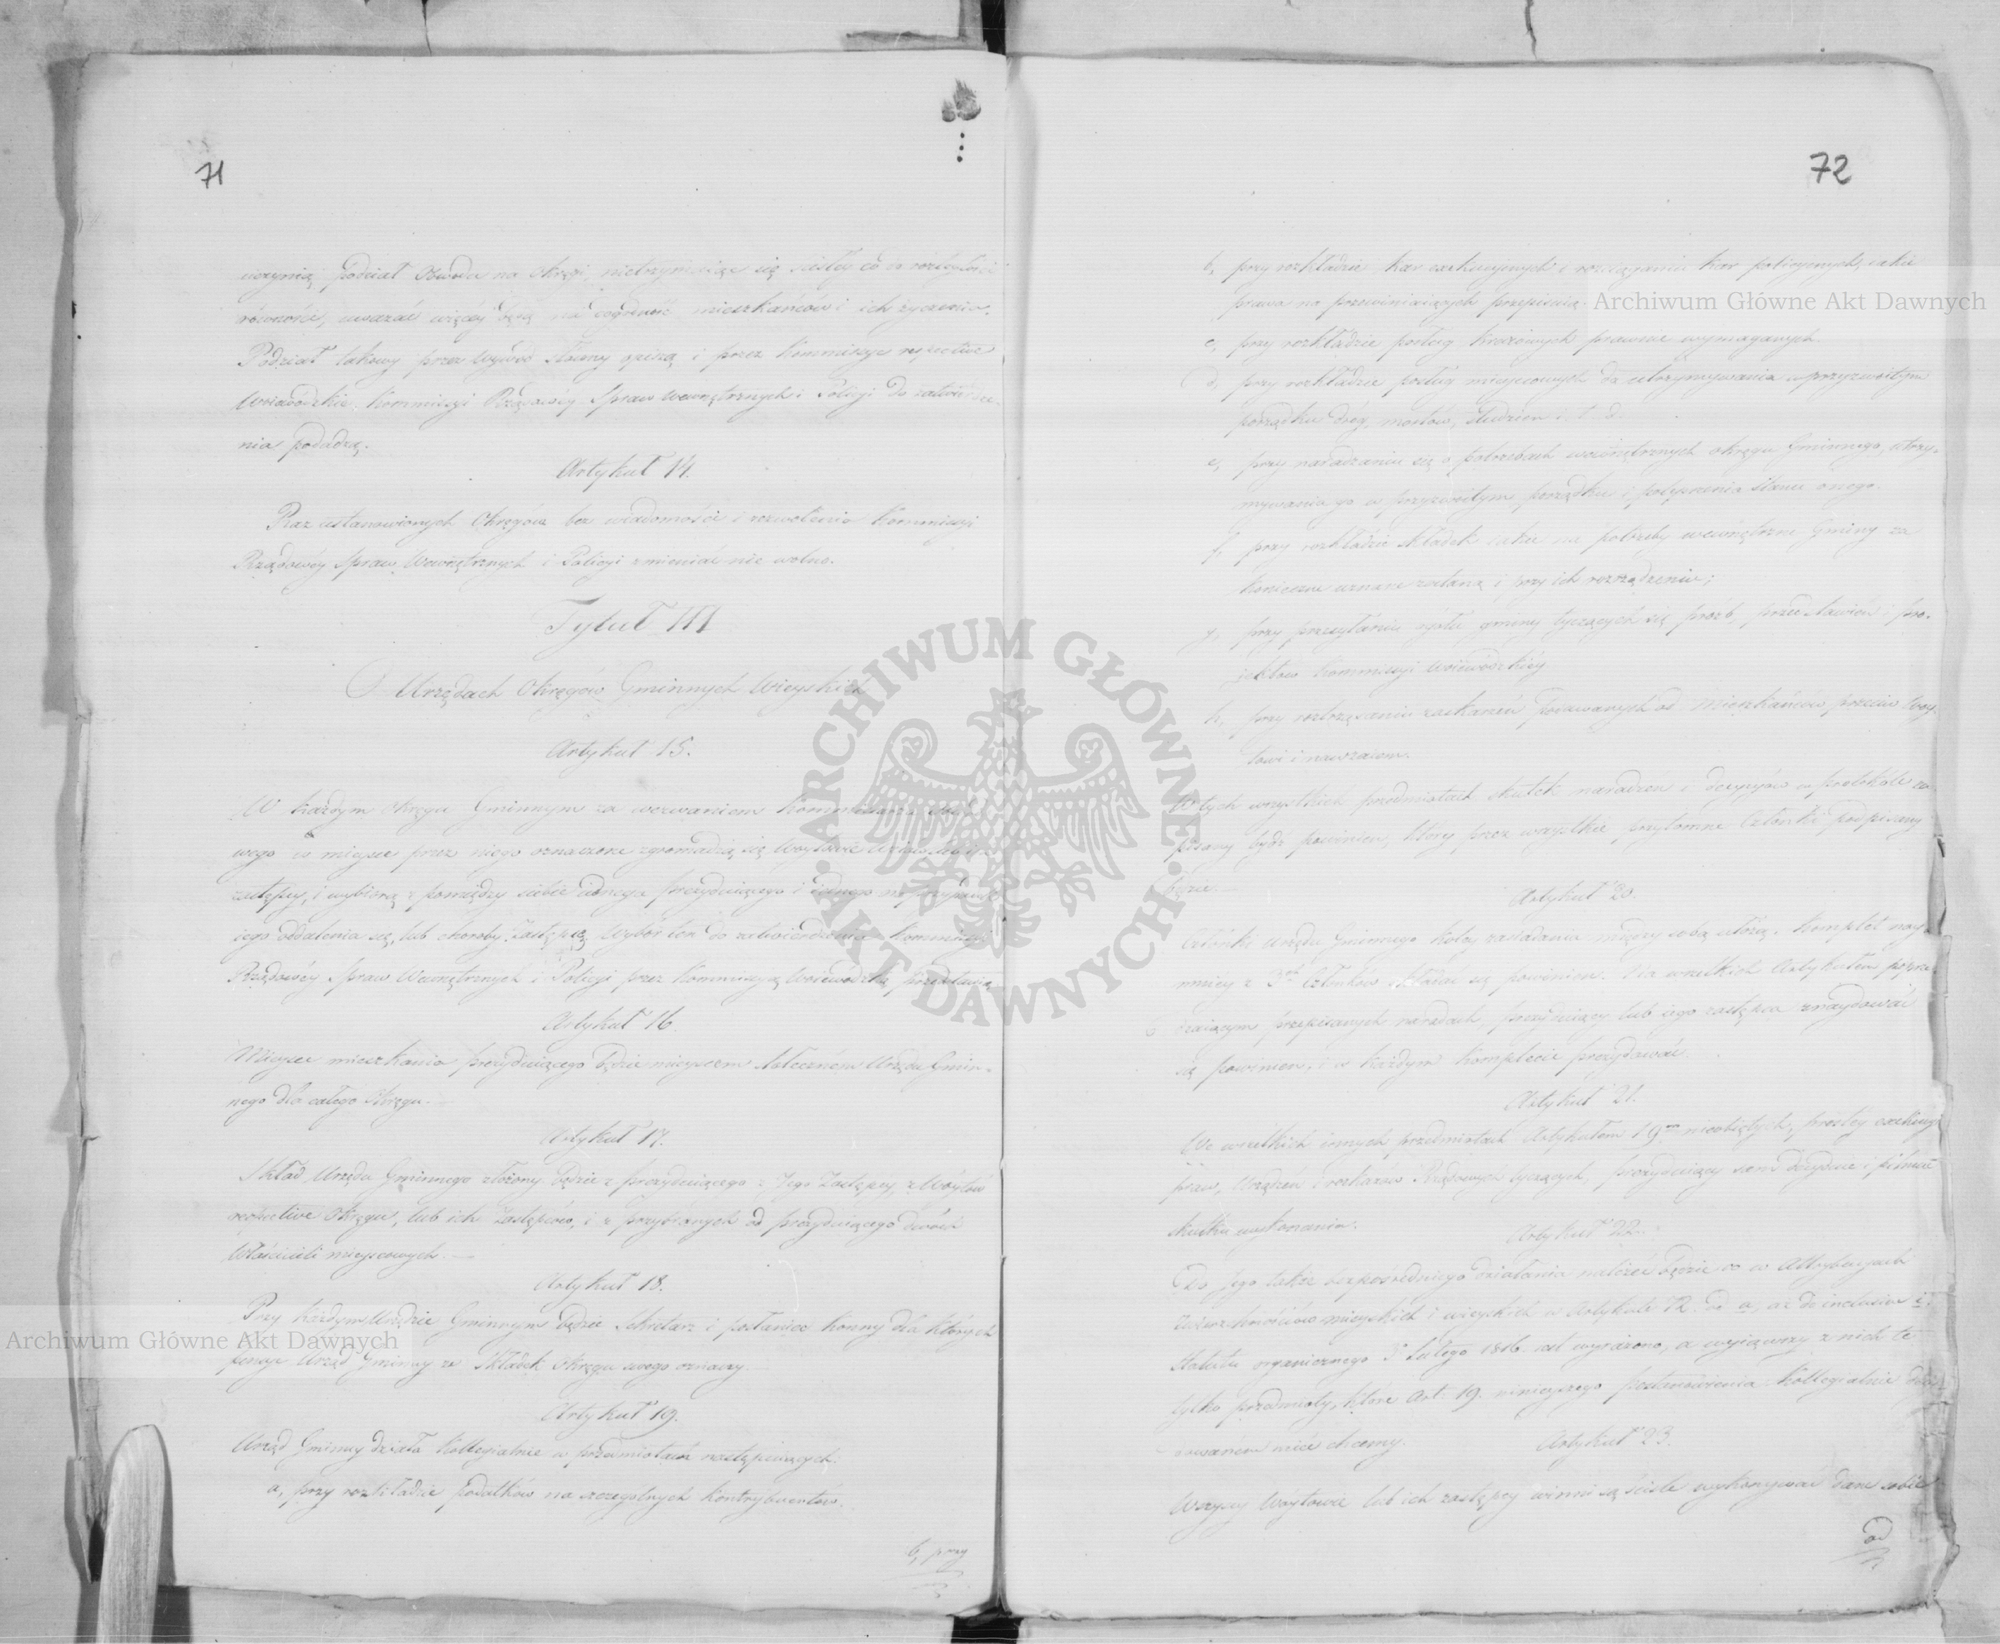 71
uczynią podział Obwodu na okręgi, nietrzymaiąc się ściśley co do rozległości
równości, uważać więcéy będą na dogodność mieszkańców i ich życzenia.
Podział takowy przez Wywód Słowny opiszą i przez Kommissye respective
Woiewódzkie Kommissyi Rządowéy Spraw Wewnętrznych i Policyi do zatwierdze-
nia podadzą.
Artykuł 14.
Raz ustanowionych Okręgów bez wiadomości i zezwolenia Kommissyi
Rządowéy Spraw Wewnętrznych i Policyi zmieniać nie wolno.
Tytuł III
O Urzędach Okręgów Gminnych Wieyskich
Artykuł 15.
W każdym okręgu Gminnym za wezwaniem Kommissarza Obwodo-
wego w mieysce przez niego oznaczone zgromadzą się Woytowie
zastępcy, i wybiorą z pomiędzy siebie iednego prezyduiącego i iednego na przypadek
iego oddalenia się, lub choroby Zastępcę. Wybór ten do zatwierdzenia Kommissyi
Rządowéy Spraw Wewnętrznych i Policyi przez Kommissyą Woiewódzką przedstawią
Artykuł 16.
Mieysce mieszkania prezyduiącego będzie mieyscem statecznem Urzędu Gmin-
nego dla całego Okręgu.
Artykuł 17.
Skład Urzędu Gminnego złożony będzie z prezyduiącego z Jego Zastępcy, z Woytów
respective Okręgu, lub ich Zastępców, i z przybranych od prezyduiącego dwóch
Właścicieli mieyscowych.
Artykuł 18.
Przy każdym Urzędzie Gminnym będzie Sekretarz i posłaniec konny dla których
pensye Urząd Gminny ze Składek Okręgu swego oznaczy.
Artykuł 19.
Urząd Gminny działa Kollegialnie w przedmiotach następuiących:
a, przy rozkładzie podatków na szczególnych kontrybuentów.
b, przy
72
b, przy rozkładzie kar exekucyinych i rozciąganiu kar policyinych, iakie
prawa na przewiniaiących przepisuią.
c, przy rozkładzie posług kraiowych prawnie wymaganych.
d, przy rozkładzie posług mieyscowych do utrzymywania w przyzwoitym
porządku dróg, mostów, studzien i. t. d.
e, przy naradzaniu się o potrzebach wewnętrznych okręgu Gminnego, utrzy-
mywania go w przyzwoitym porządku i polepszenia stanu onego.
f, przy rozkładzie składek iakie na potrzeby wewnętrzne Gminy za
konieczne uznane zostaną i przy ich rozrządzeniu;
g, przy przesyłaniu ogółu gminy tyczących się próśb, przedstawień i pro-
iektów Kommissyi Woiewódzkiéy
h, przy roztrząsaniu zaskarżeń podawanych od mieszkańców przeciw Woy-
towi i nawzaiem.
W tych wszystkich przedmiotach skutek naradzeń i decyzyów w protokule za-
pisany bydź powinien, który przez wszystkie przytomne Członki podpisany
będzie.
Artykuł 20.
Członki Urzędu Gminnego koley zasiadania między sobą ułożą. Komplet nay-
mniey z 3ch Członków składać się powinien. Na wszelkich Artykułem poprze-
dzaiącym przepisanych naradach, prezyduiący lub iego zastępca znaydować
się powinien, i w każdym komplecie prezydować.
Artykuł 21.
We wszelkich innych przedmiotach Artykułem 19m nieobiętych, prostey exekucyi
praw, Urządzeń i rozkazów Rządowych tyczących, prezyduiący sam decyduie i pilnuie
skutku wykonania.
Artykuł 22.
Do Jego także bezpośredniego działania należeć będzie co w Attrybucyach
Zwierzchnościów mieyskich i wieyskich w Artykule 12. od a, aż do inclusive i.
Statutu organicznego 3 Lutego 1816. iest wyrażono, a wyiąwszy z nich te
tylko przedmioty, które Art. 19. ninieyszego postanowienia Kollegialnie decy-
dowanem mieć chcemy.
Artykuł 23.
Wszyscy Woytowie lub ich zastępcy winni są ściśle wykonywać dane sobie
od
Archiwum Główne Akt Dawnych
Archiwum Główne Akt Dawnych
ARCHIWUM GŁÓWNE
AKT DAWNYCH